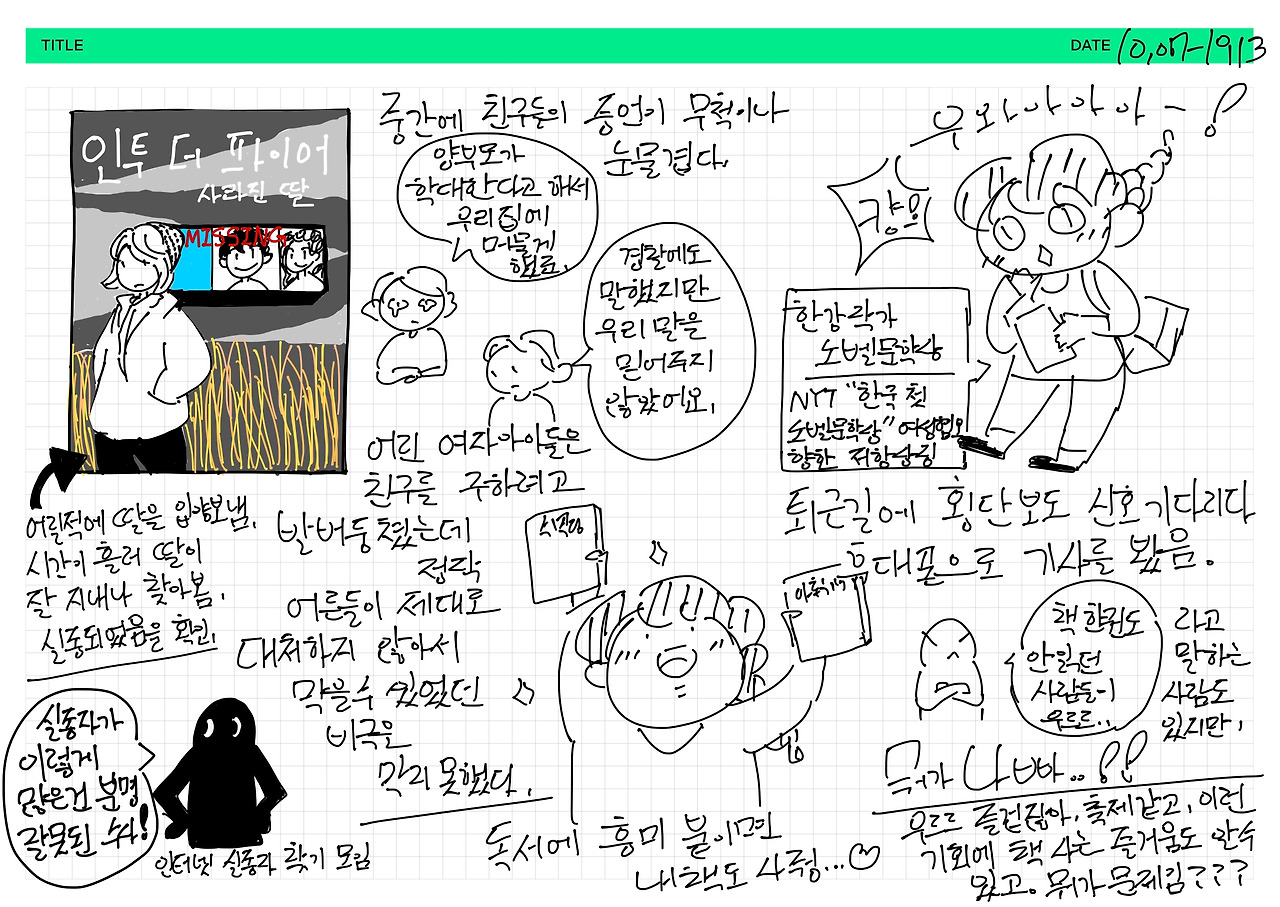 TITLE
DATE 10,07-1913
인투 더 파이어
사라진 딸
MISSING
어릴적에 딸을 입양보냄.
시간이 흘러 딸이
잘 지내나 찾아봄.
실종되었음을 확인.
실종자가
이렇게
많은건 분명
잘못된 수사!
인터넷 실종자 찾기 모임
중간에 친구들의 증언이 무척이나
눈물겹다.
양부모가
학대한다고 해서
우리집에
머물게
했죠.
경찰에도
말했지만
우리 말을
믿어주지
않았어요.
어린 여자아이들은
친구를 구하려고
발버둥쳤는데
정작
어른들이 제대로
대처하지 않아서
막을수 있었던
비극을
막지 못했다.
우와아아아-!
걍!!
한강 작가
노벨문학상
NYT "한국 첫
노벨문학상" 여성혐오
향한 저항상징
퇴근길에 횡단보도 신호 기다리다
휴대폰으로 기사를 봤음.
책 한권도
안읽던
사람들이
우르르..
라고
말하는
사람도
있지만,
뭐가 나빠..!!
우르르 즐겁잖아, 축제같고, 이런
기회에 책 사는 즐거움도 알수
있고. 뭐가 문제임???
독서에 흥미 붙이면
내책도 사줘...♡